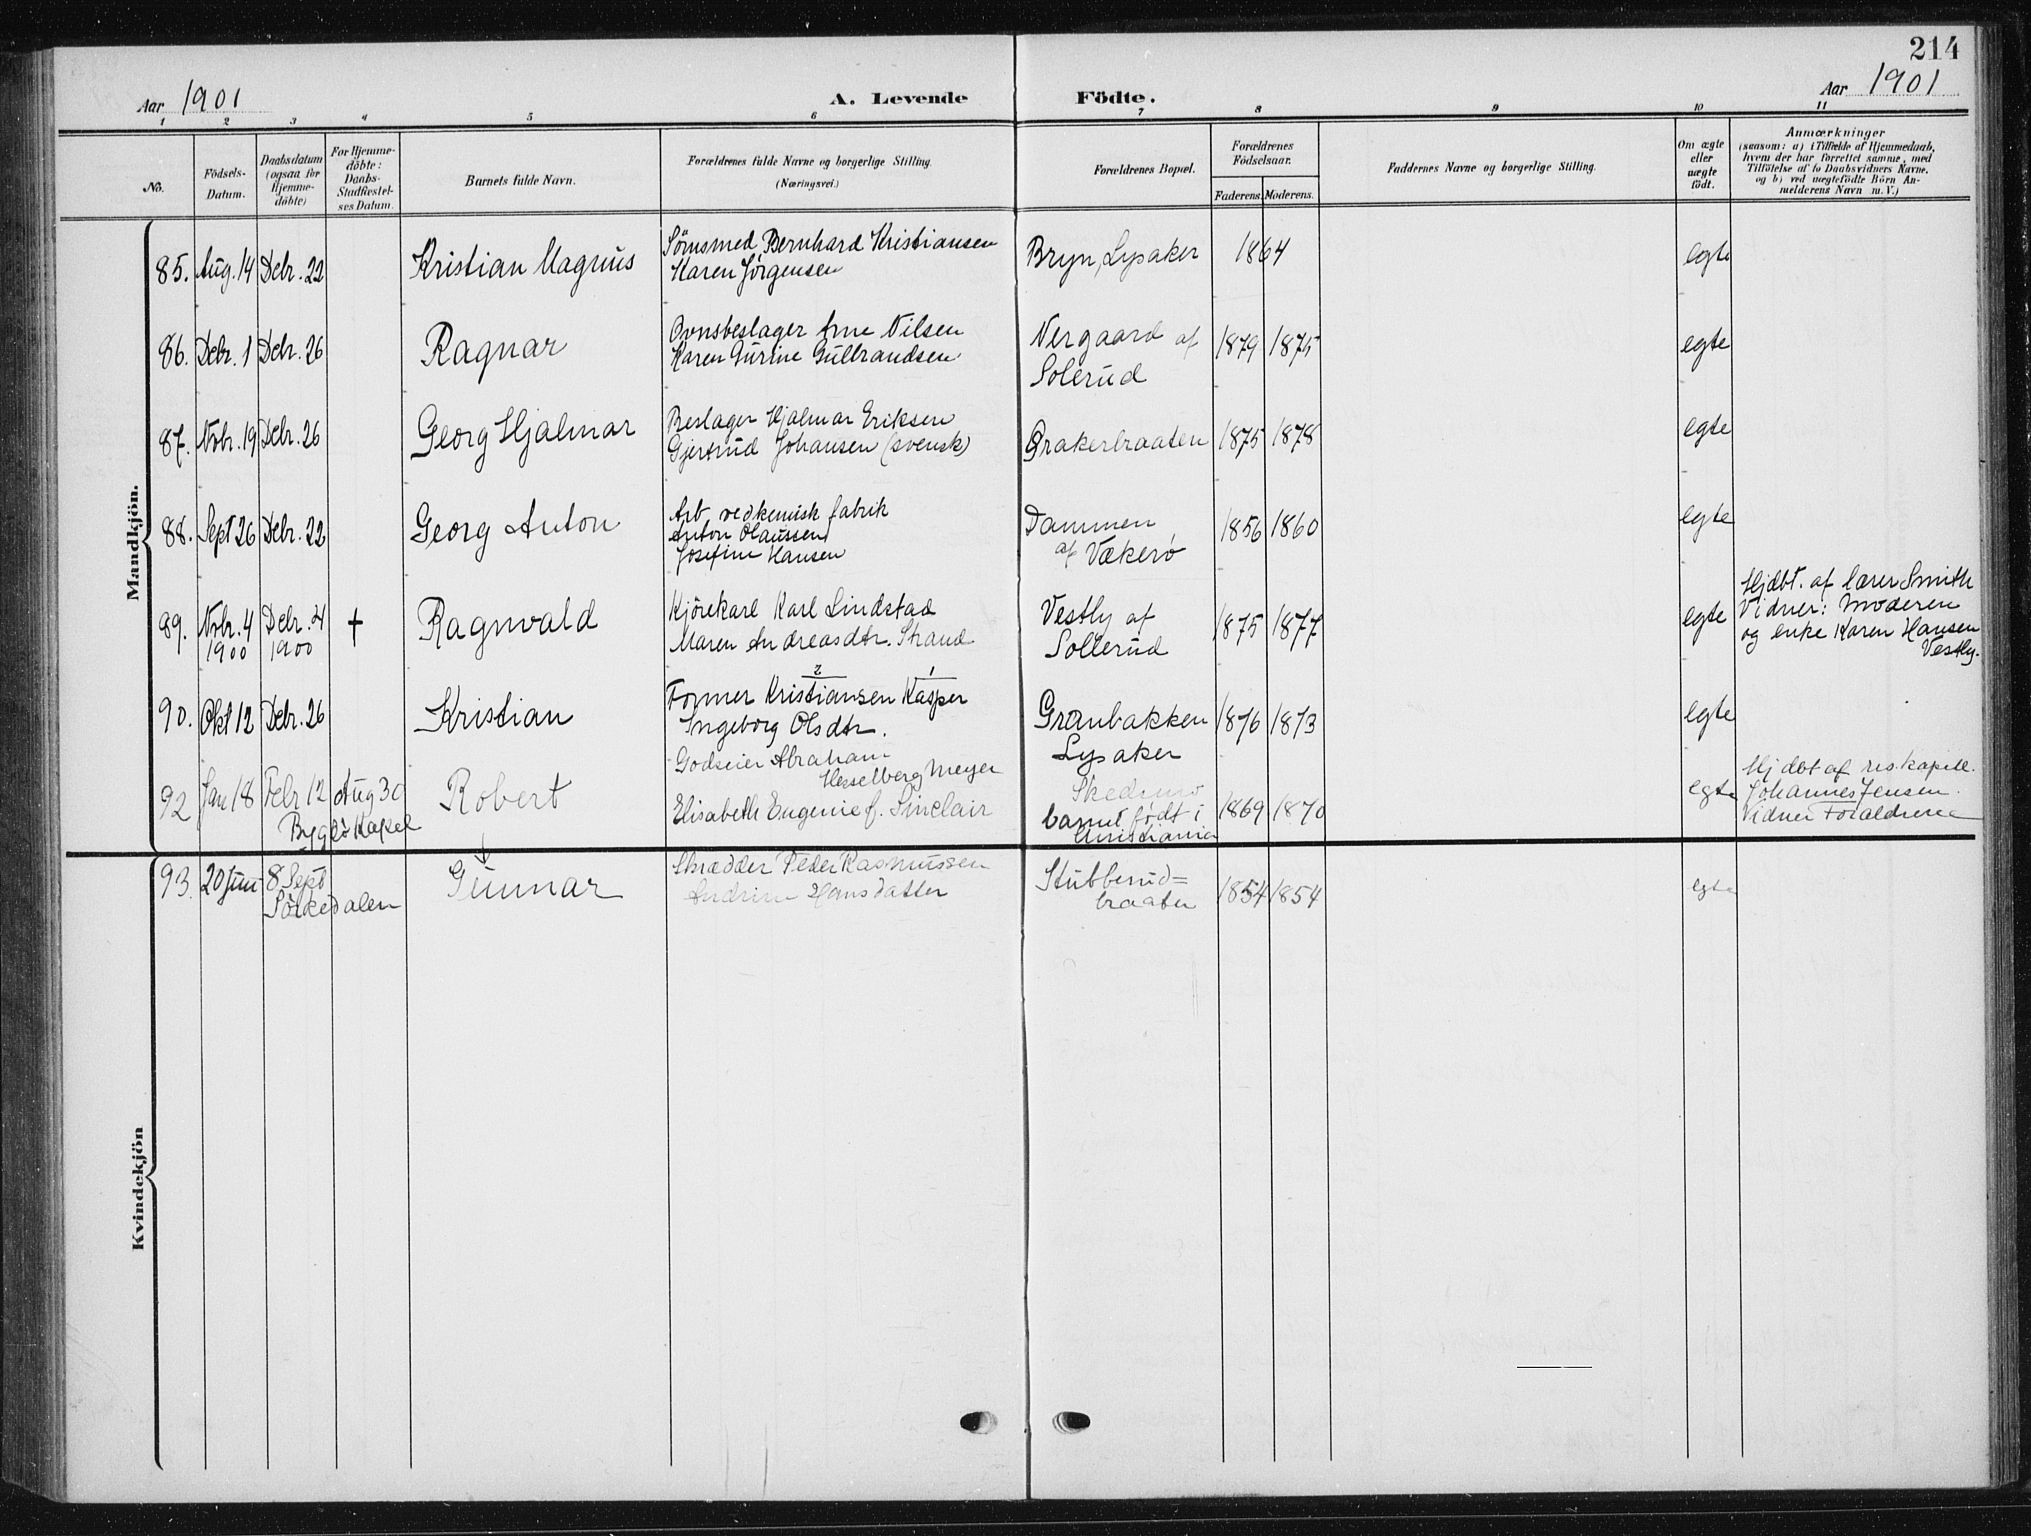 214
Aar 1901 A. Levende Födte. Aar 1901
1 2 3 4 5 6 7 8 9 10 11
No.
Födsels-
Datum.
Daabsdatum
(ogsaa for
Hjemme-
döbte)
For Hjemme-
döbte:
Daabs-
Stadfæstel-
ses Datum.
Barnets fulde Navn.
Forældrenes fulde Navne og borgerlige Stilling.
(Næringsvei.)
Forældrenes Bopæl.
Forældrenes
Födselsaar.
Faderens. Moderens.
Faddernes Navne og borgerlige Stilling.
Om ægte
eller
uægte
födt.
Anmærkninger
(saasom: a) i Tilfælde af Hjemmedaab,
hvem der har forrettet samme, med
Tilföielse af to Daabsvidners Navne.
og b) ved uægtefödte Börn An-
melderens Navn m. V.)
Mandkjön.
85. Aug. 14 Debr. 22 Kristian Magnus
Sømsmed Bernhard Kristiansen
Karen Jørgensen
Bryn, Lysaker 1864 egte
86. Debr. 1 Debr. 26 Ragnar
Ovnsbeslager Arne Nilsen
Karen Gurine Gulbrandsen
Nergaard af
Solerud
1879 1875 egte
87. Novbr. 19 Debr. 26 Georg Hjalmar
Beslager Hjalmar Eriksen
Gjertrud Johansen (svensk)
Grakerbraaten 1875 1878 egte
88. Sept 26 Debr. 22 Georg Anton
Arb. ved kemisk fabrik
Anton Olaussen
Josefine Hansen
Dammen
af Vækerø
1856 1860 egte
89. Novbr. 4 Debr. 4 † Ragnvald
1900 1900
Kjørekarl Karl Lindstad
Maren Andreasdtr. Strand
Vestly af
Sollerud
1875 1877 egte
Hjdbt. af lærer Smith
Vidner: Moderen
og enke Karen Hansen
Vestly.
90. Okt 12 Debr. 26 Kristian
2 1
Former Kristiansen Kasper
Ingeborg Olsdtr.
Granbakken
Lysaker
1876 1873 egte
92 Jan 18 Febr 12 Aug 30 Robert
Bygdø Kapel
Godseier Abraham
Hesselberg Meyer
Elisabeth Eugenie f. Sinclair
barnet født i
Christiania
1869 1870 egte
Hjdbt af res. kapell.
Johannes Jensen.
Vidner Forældrene
Kvindekjön
93. 20 Juni 8 Sept Gunnar
Sørkedalen
Skrædder Peder Rasmussen
Andrine Hansdatter
Stubberud=
braaten
1854 1854 egte